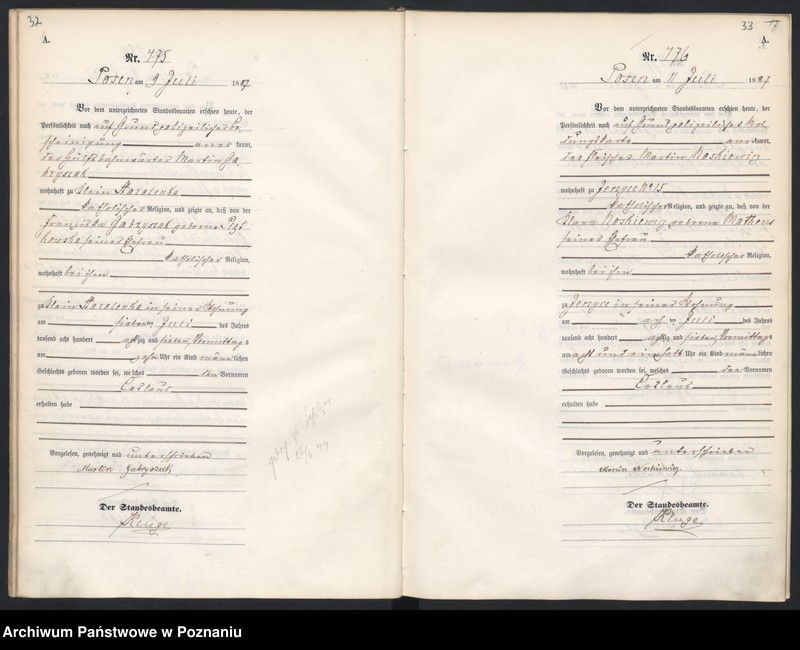 32
A.
Nr. 475
Posen am 9 Juli 1887
Vor dem unterzeichneten Standesbeamten erschien heute, der
Persönlichkeit nach auf Grund polizeilicher Be-
scheinigung anerkannt,
der Hülfsbahnwärter Martin Ga-
bryszak
wohnhaft zu Klein Starolenka
katholischer Religion, und zeigte an, daß von der
Franziska Gabryszak geborne
seiner Ehefrau
katholischer Religion,
wohnhaft bei ihm
zu Klein Starolenka in seiner Wohnung
am sieben ten Juli des Jahres
tausend acht hundert achtzig und sieben Vormittags
um zehn Uhr ein Kind männlichen
Geschlechts geboren worden sei, welches den Vornamen
Ceslaus
erhalten habe
Vorgelesen, genehmigt und unterschrieben
Martin Gabryszak
Der Standesbeamte.
Kluge
33
A.
Nr. 476
Posen am 11 Juli 1887
Vor dem unterzeichneten Standesbeamten erschien heute, der
Persönlichkeit nach auf Grund polizeilicher Mel-
dungskarte anerkannt,
der Fleischer Martin Noskiewicz
wohnhaft zu Jerzyce No 15
katholischer Religion, und zeigte an, daß von der
Clara Noskiewicz geborne Matheus
seiner Ehefrau
katholischer Religion,
wohnhaft bei ihm
zu Jerzyce in seiner Wohnung
am acht ten Juli des Jahres
tausend acht hundert achtzig und sieben Vormittags
um acht und einhalb Uhr ein Kind männlichen
Geschlechts geboren worden sei, welches den Vornamen
Ceslaus
erhalten habe
Vorgelesen, genehmigt und unterschrieben
Noskiewicz
Der Standesbeamte.
Kluge
Archiwum Państwowe w Poznaniu